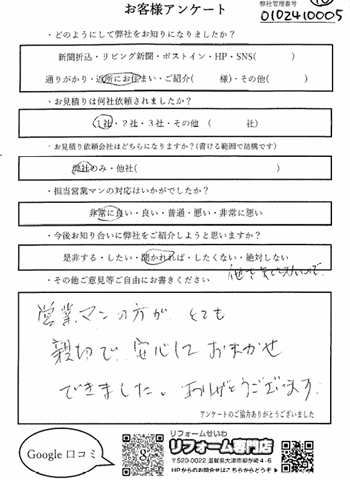 お客様アンケート
弊社管理番号
0102410005
・どのようにして弊社をお知りになりましたか？
新聞折込・リビング新聞・ポストイン・HP・SNS( )
通りがかり・近所にお住まい・ご紹介( 様)・その他( )
・お見積りは何社依頼されましたか？
1社・2社・3社・その他 ( 社)
・お見積り依頼会社はどちらになりますか？(書ける範囲で結構です)
弊社のみ・他社( )
・担当営業マンの対応はいかがでしたか？
非常に良い・良い・普通・悪い・非常に悪い
・今後お知り合いに弊社をご紹介しようと思いますか？
是非する・したい・聞かれれば・したくない・絶対しない
・その他ご意見等ご自由にお書きください
営業マンの方が とても
親切で 安心して おまかせ
できました。ありがとうございます
アンケートのご協力ありがとうございました
Google 口コミ
リフォームせいわ
リフォーム専門店
〒520-0022 滋賀県大津市柳が崎4-6
HPからのお問合せはこちらからどうぞ